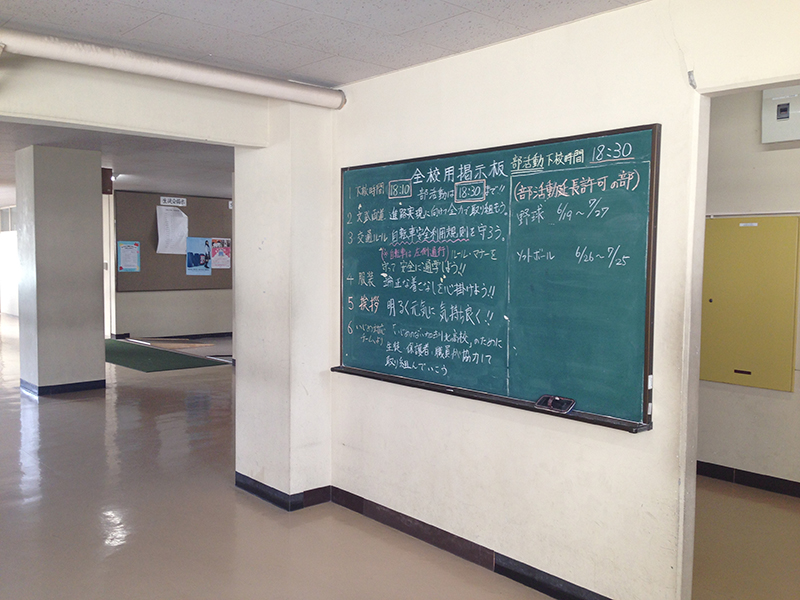 全校用掲示板
1 下校時間 18:10 部活動 18:30 まで!!
2 文武両道 進路実現に向け全力で取り組もう。
3 交通ルール 自転車安全利用五則を守ろう。
(※自転車は左側通行) ルール・マナーを
守って安全に通学しよう!!
4 服装 端正な着こなしを心掛けよう!!
5 挨拶 明るく元気に気持ち良く!!
6 いじめ対策チームより 「いじめのない 北高校」のために
生徒 保護者 職員が協力して
取り組んでいこう
部活動下校時間 18:30
(部活動延長許可の部)
野球 6/19~7/27
ソフトボール 6/26~7/25